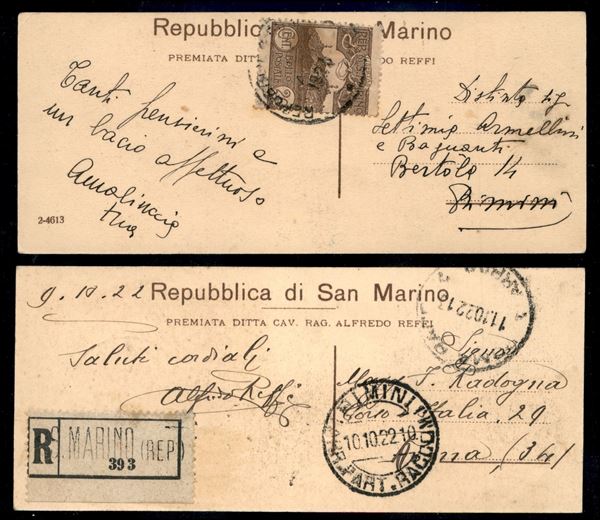 Repubblica Marino
PREMIATA DITT DO REFFI
Tanti pensierini e
un bacio affettuoso
tua
Distinto sig
Settimio Armellini
e Bagnanti
Bertola 14
Rimini
2-4613
9.10.22
Repubblica di San Marino
PREMIATA DITTA CAV. RAG. ALFREDO REFFI
11.10.22.17
Saluti cordiali
Alfredo Reffi
Signor
T. Radogna
Corso Italia, 29
(34)
R S. MARINO (REP.)
393
RIMINI
10.10.22-10
R. PART. RACC.